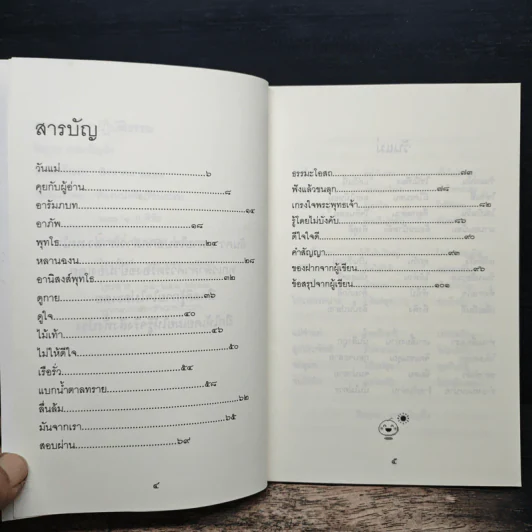 สารบัญ
วันแม่............................................๖
คุยกับผู้อ่าน............................................๘
อารัมภบท............................................๑๔
อาภัพ............................................๑๘
พุทโธ............................................๒๔
หลานฉงน............................................๒๘
อานิสงส์พุทโธ............................................๓๒
ดูกาย............................................๓๖
ดูใจ............................................๔๐
ไม้เท้า............................................๔๖
ไม่ให้ดีใจ............................................๕๐
เรือรั่ว............................................๕๔
แบกน้ำตาลทราย............................................๕๘
ลื่นล้ม............................................๖๒
มันจากเรา............................................๖๕
สอบผ่าน............................................๖๙
๔
ธรรมะโอสถ............................................๗๓
ฟังแล้วขนลุก............................................๗๘
เกรงใจพระพุทธเจ้า............................................๘๒
รู้โดยไม่บังคับ............................................๘๖
ดีใจใจดี............................................๙๐
คำสัญญา............................................๙๓
ของฝากจากผู้เขียน............................................๙๖
ข้อสรุปจากผู้เขียน............................................๑๐๑
๕